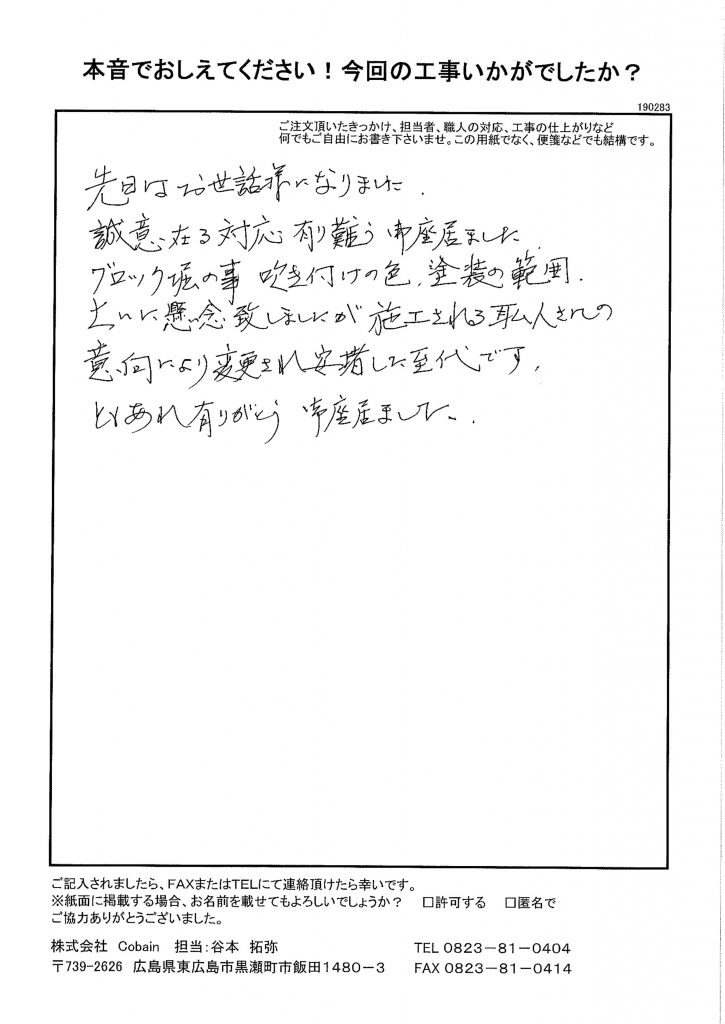 本音でおしえてください！今回の工事いかがでしたか？
190283
ご注文頂いたきっかけ、担当者、職人の対応、工事の仕上がりなど
何でもご自由にお書き下さいませ。この用紙でなく、便箋などでも結構です。
先日はお世話様になりました.
誠意在る対応 有り難う御座居ました.
ブロック堀の事 吹き付けの色、塗装の範囲.
大いに懸念致しましたが施工される職人さんの
意向により変更され安堵した至代です,
ともあれ有りがとう 御座居ました..
ご記入されましたら、FAXまたはTELにて連絡頂けたら幸いです。
※紙面に掲載する場合、お名前を載せてもよろしいでしょうか？ □許可する □匿名で
ご協力ありがとうございました。
株式会社 Cobain 担当：谷本 拓弥 TEL 0823－81－0404
〒739-2626 広島県東広島市黒瀬町市飯田1480－3 FAX 0823－81－0414